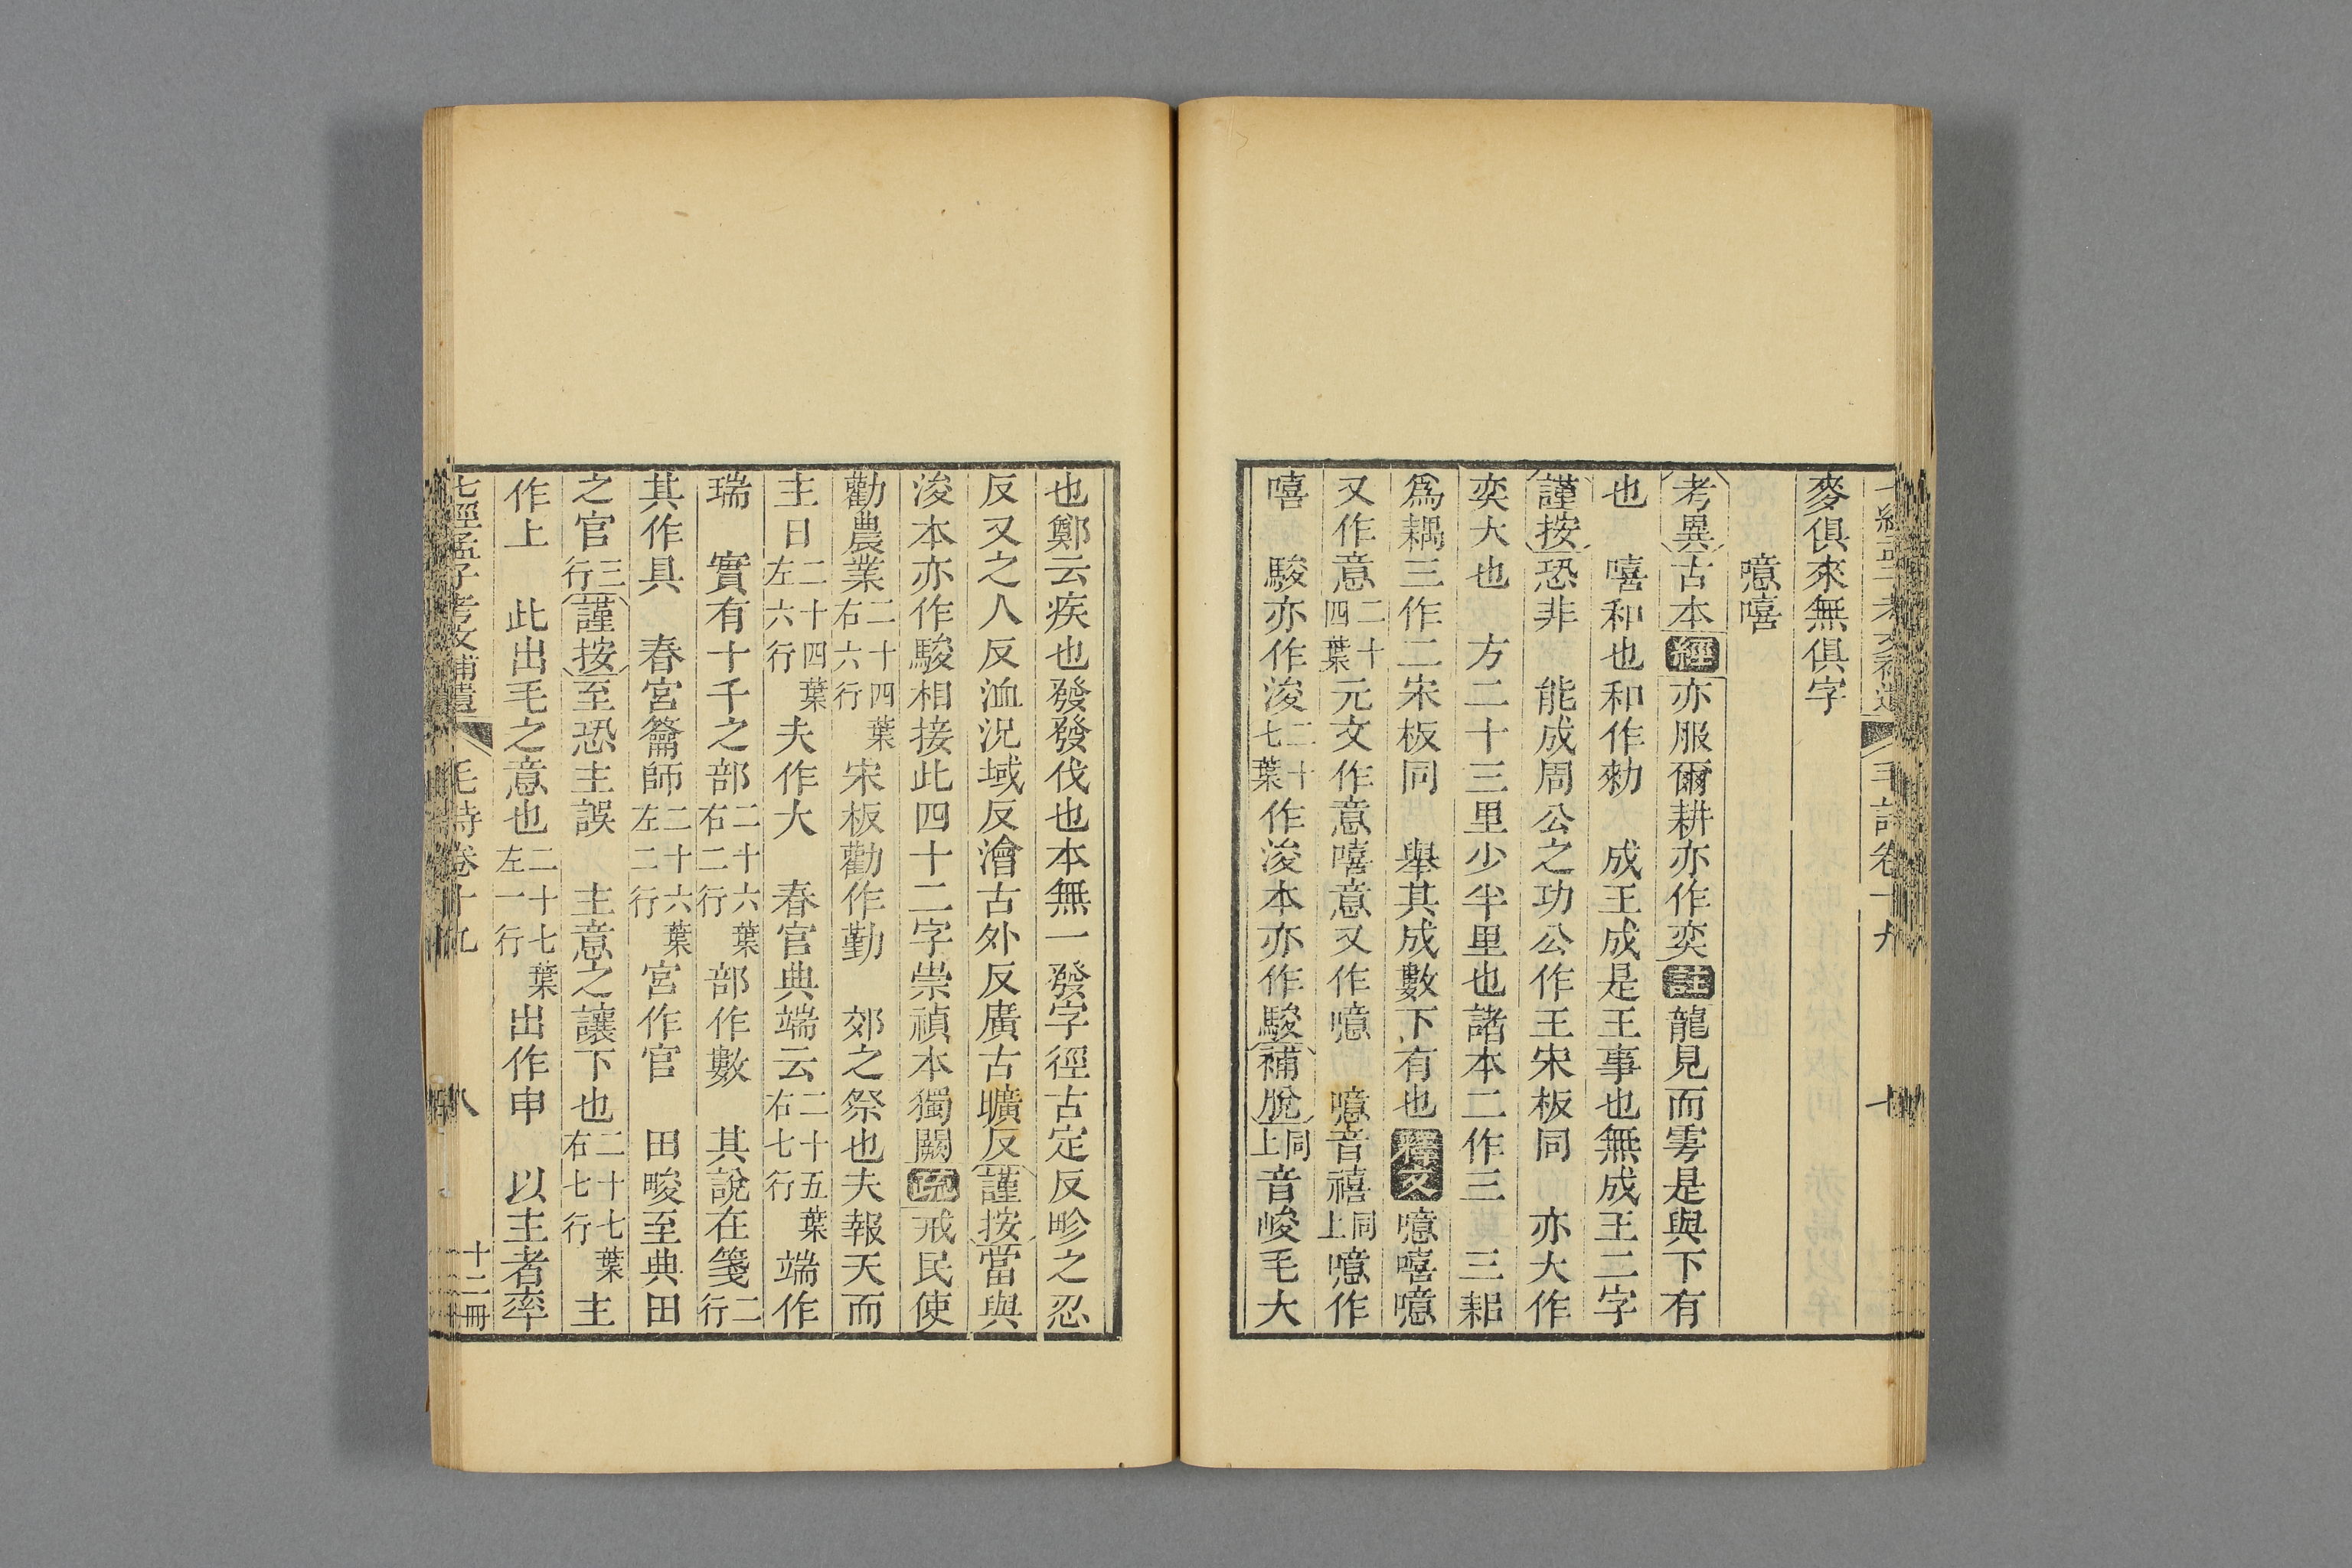 麥俱來無俱字
噫嘻
考異古本經亦服爾耕亦作奕註龍見而雩是與下有
也　嘻和也和作勑　成王成是王事也無成王二字
謹按恐非　能成周公之功公作王宋板同　亦大作
奕大也　方二十三里少半里也諸本二作三　三耜
爲耦三作二宋板同　舉其成數下有也釋文噫嘻噫
又作意二十四葉元文作意嘻意又作噫　噫音禧同上噫作
嘻　駿亦作浚二十七葉作浚本亦作駿補脫同上音峻毛大
也鄭云疾也發發伐也本無一發字徑古定反畛之忍
反又之人反洫況域反澮古外反廣古曠反謹按當與
浚本亦作駿相接此四十二字崇禎本獨闕疏戒民使
勸農業二十四葉右六行宋板勸作勤　郊之祭也夫報天而
主日二十四葉左六行夫作大　春官典端云二十五葉右七行端作
瑞　實有十千之部二十六葉右二行部作數　其說在箋二行
其作具　春宮籥師二十六葉左二行宮作官　田畯至典田
之官三行謹按至恐主誤　主意之讓下也二十七葉右七行主
作上　此出毛之意也二十七葉左一行出作申　以主者率
七經孟子考文補遺　毛詩卷十九　八　十二冊